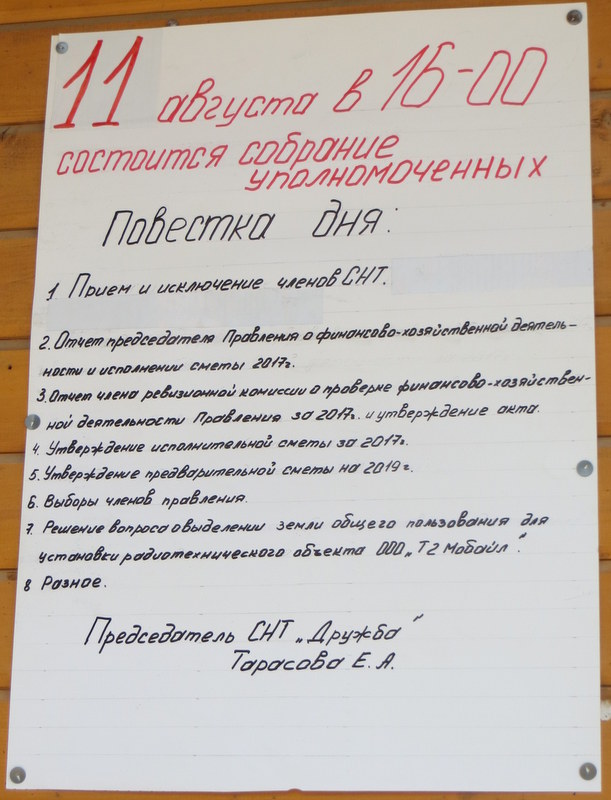 11 августа в 16-00
состоится собрание
уполномоченных
Повестка дня:
1. Прием и исключение членов СНТ.
2. Отчет председателя Правления о финансово-хозяйственной деятель-
ности и исполнении сметы 2017г.
3. Отчет члена ревизионной комиссии о проверке финансово-хозяйствен-
ной деятельности Правления за 2017г. и утверждение акта.
4. Утверждение исполнительной сметы за 2017г.
5. Утверждение предварительной сметы на 2019г.
6. Выборы членов правления.
7. Решение вопроса о выделении земли общего пользования для
установки радиотехнического объекта ООО „Т2 Мобайл".
8 Разное.
Председатель СНТ „Дружба"
Тарасова Е.А.